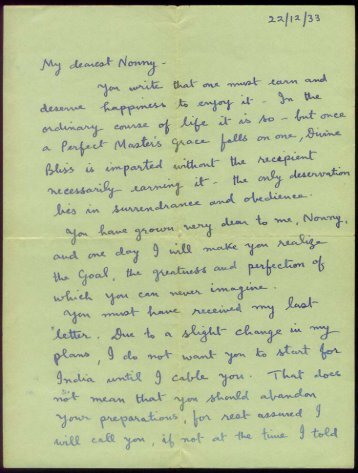 22/12/33
My dearest Nonny -
You write that one must earn and
deserve happiness to enjoy it - In the
ordinary course of life it is so - but once
a Perfect Master's Grace falls on one, Divine
Bliss is imparted without the recepient
necessarily earning it - the only deservation
lies in surrendrance and obedience.
You have grown very dear to me, Nonny,
and one day I will make you realize
the Goal, the greatness and perfection of
which you can never imagine.
You must have received my last
letter. Due to a slight change in my
plans, I do not want you to start for
India until I cable you. That does
not mean that you should abandon
your preparations, for rest assured I
will call you, if not at the time I told